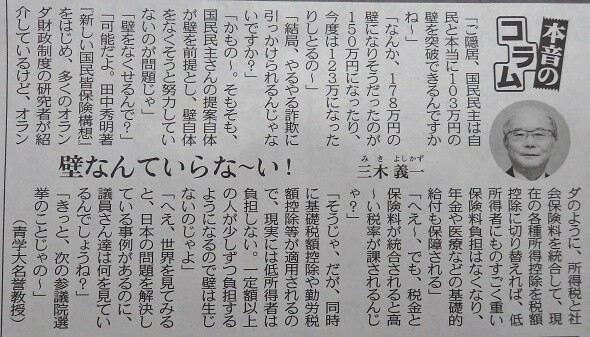 本音のコラム
三木義一
みきよしかず
壁なんていらな〜い！
「ご隠居、国民民主は自
民と本当に103万円の
壁を突破できるんですか
ね〜」
「なんか、178万円の
壁になりそうだったのが
150万円になったり、
今度は123万になった
りしとるの〜」
「結局、やるやる詐欺に
引っかけられるんじゃな
いですか?」
「かもの〜。そもそも、
国民民主さんの提案自体
が壁を前提とし、壁自体
をなくそうと努力してい
ないのが問題じゃ」
「壁をなくせるんで?」
「可能だよ。田中秀明著
『新しい国民皆保険構想』
をはじめ、多くのオラン
ダ財政制度の研究者が紹
介しているけど、オラン
ダのように、所得税と社
会保険料を統合して、現
在の各種所得控除を税額
控除に切り替えれば、低
所得者にものすごく重い
保険料負担はなくなり、
年金や医療などの基礎的
給付も保障される」
「へえ〜、でも、税金と
保険料が統合されると高
〜い税率が課されるんじ
ゃ?」
「そうじゃ、だが、同時
に基礎税額控除や勤労税
額控除等が適用されるの
で、現実には低所得者は
負担しない。一定額以上
の人が少しずつ負担する
ようになるので壁は生じ
ないのじゃよ」
「へえ、世界を見てみる
と、日本の問題を解決し
ている事例があるのに、
議員さん達は何を見てい
るんでしょうね?」
「きっと、次の参議院選
挙のことじゃの〜」
（青学大名誉教授）